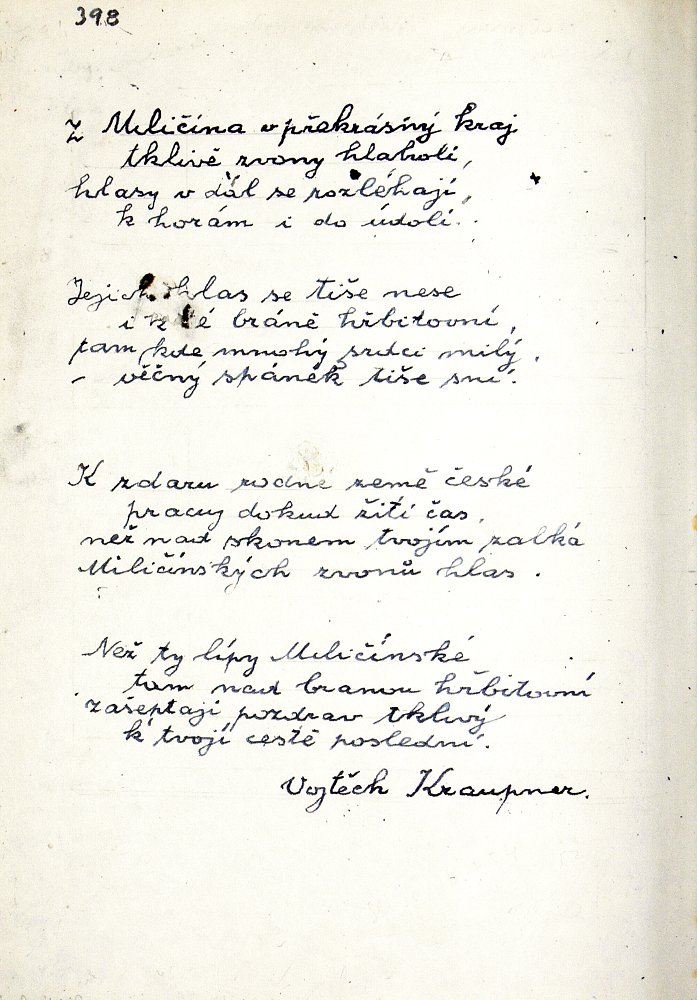 398
Z Miličína v překrásný kraj
tklivě zvony hlaholí,
hlasy v dál se rozléhají,
k horám i do údolí.
Jejich hlas se tiše nese
i k té bráně hřbitovní,
tam kde mnohý srdci milý,
- věčný spánek tiše sní.
K zdaru rodné země české
pracuj dokud žití čas,
než nad skonem tvojím zalká
Miličínských zvonů hlas.
Než ty lípy Miličínské
tam nad branou hřbitovní
zašeptají pozdrav tklivý
k tvojí cestě poslední.
Vojtěch Kraupner.